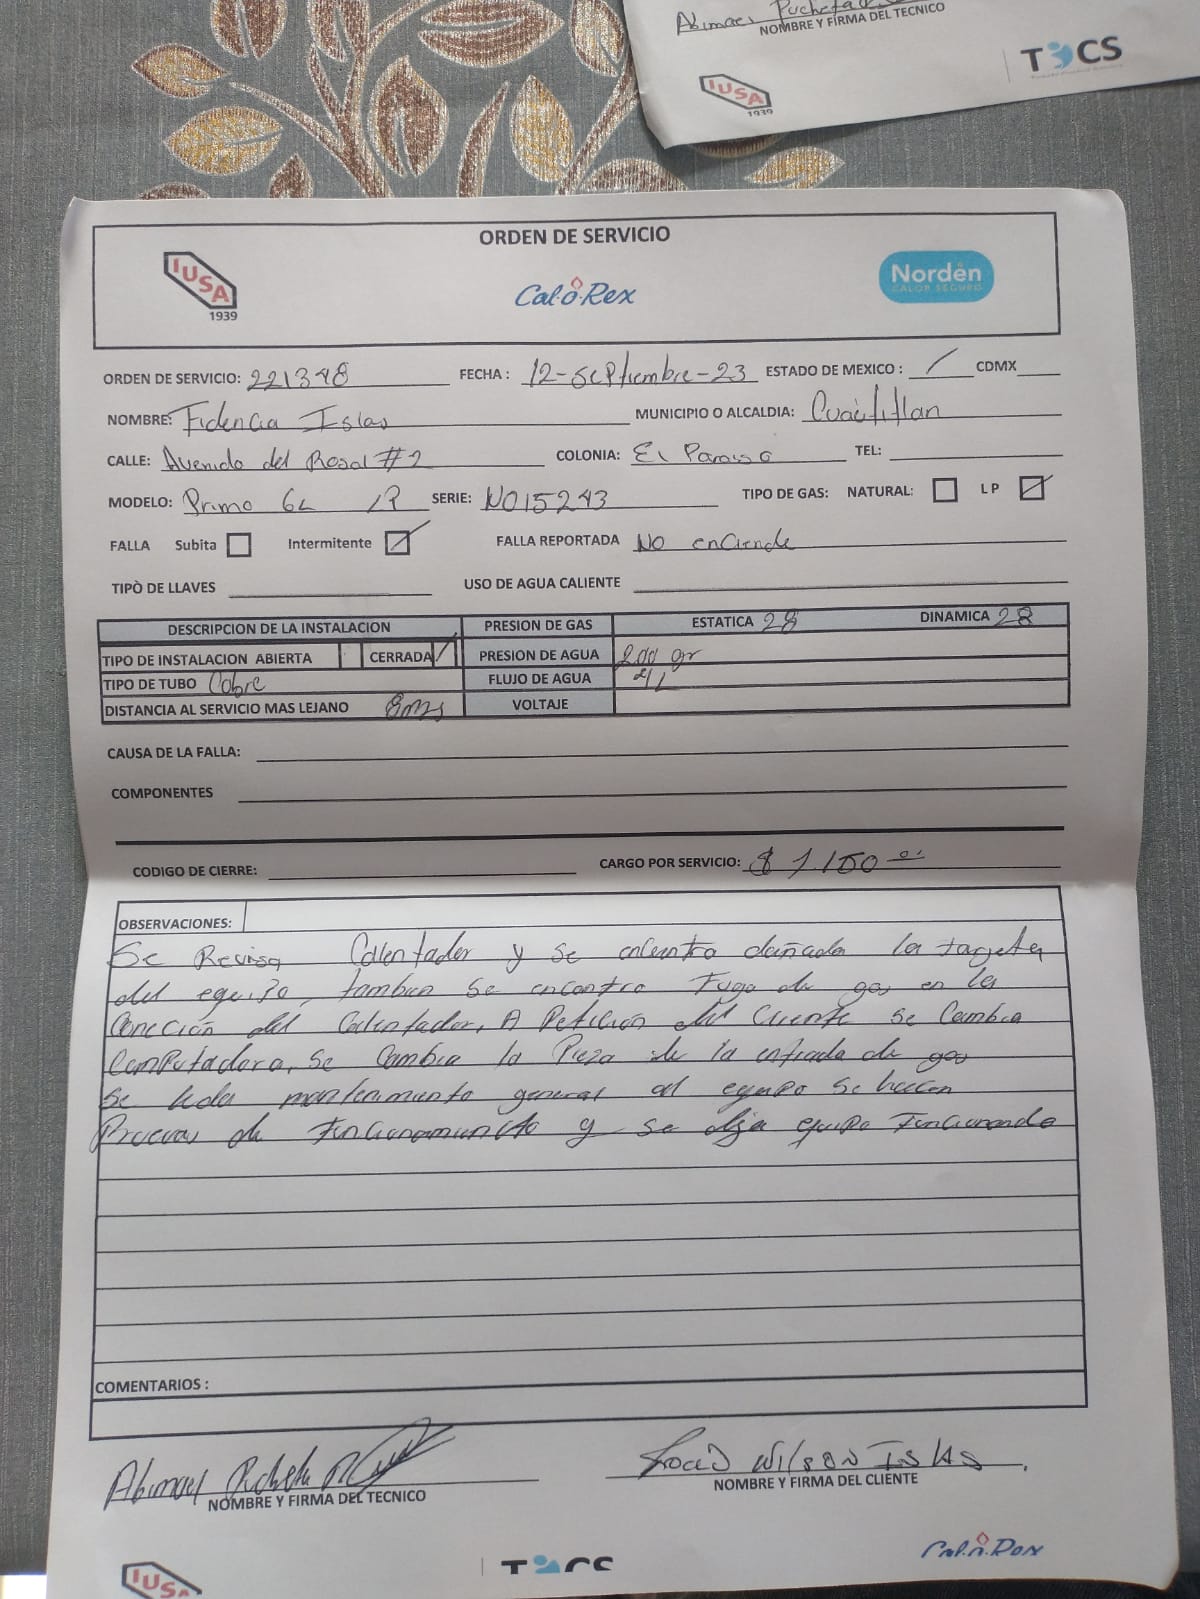 Abimael Pucheta
NOMBRE Y FIRMA DEL TECNICO
IUSA
1939
TOCS
ORDEN DE SERVICIO
IUSA
1939
Cal-o-Rex
Nordën
CALOR SEGURO
ORDEN DE SERVICIO: 221348 FECHA : 12-Septiembre-23 ESTADO DE MEXICO : / CDMX
NOMBRE: Fidencia Islas MUNICIPIO O ALCALDIA: Cuautitlan
CALLE: Avenida del Rosal #2 COLONIA: El Paraiso TEL:
MODELO: Primo 6L LP SERIE: N015243 TIPO DE GAS: NATURAL: LP
FALLA Subita Intermitente FALLA REPORTADA No enciende
TIPÒ DE LLAVES USO DE AGUA CALIENTE
DESCRIPCION DE LA INSTALACION PRESION DE GAS ESTATICA 28 DINAMICA 28
TIPO DE INSTALACION ABIERTA CERRADA PRESION DE AGUA 200 gr
TIPO DE TUBO Cobre FLUJO DE AGUA 4L
DISTANCIA AL SERVICIO MAS LEJANO 8mts VOLTAJE
CAUSA DE LA FALLA:
COMPONENTES
CODIGO DE CIERRE: CARGO POR SERVICIO: $
OBSERVACIONES:
Se Revisa Calentador y se encuentra dañada la targeta
del equipo, tambien se encontro Fuga de gas en la
Coneccion del Calentador, A Peticion del Cliente se Cambia
Computadora, se Cambia la Pieza de la entrada de gas
Se le da mantenimiento general al equipo Se hacen
Pruevas de Funcionamiento y se deja equipo Funcionando
COMENTARIOS :
Abimael Pucheta
NOMBRE Y FIRMA DEL TECNICO
Rocio Wilson Islas
NOMBRE Y FIRMA DEL CLIENTE
IUSA
TOCS
Cal-o-Rex